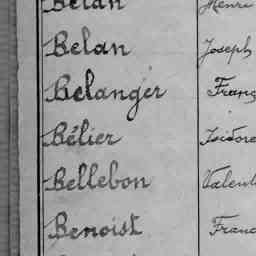 Belan Henri
Belan Joseph
Belanger Franç
Bélier Isidore
Bellebon Valent
Benoist Franc